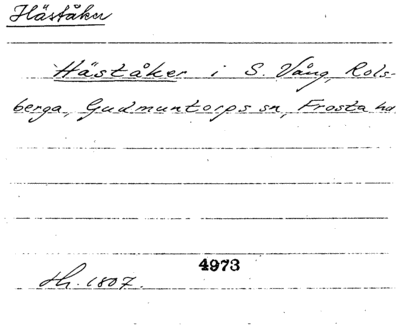 Häståker
Häståker i S. Vång, Rols-
berga, Gudmuntorps sn, Frosta hd
4973
Hh. 1807.